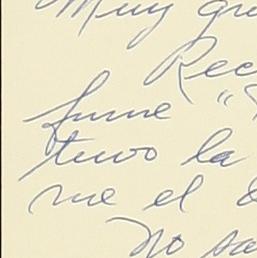 Muy gr
Rec
fume "
tuvo la
me el
No sa